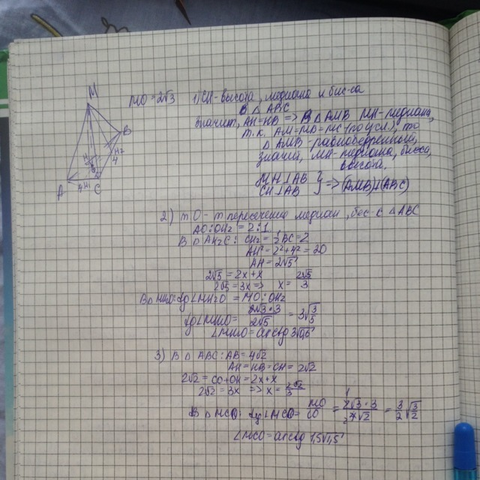 M
B
A
C
4
MO = 2√3 1) CH - высота, медиана и бис-са
В △ ABC
значит, AH = HB => В △ AMB MH - медиана,
т.к. AM = MB = MC (по усл.), то
△ AMB - равнобедренный,
значит, MH - медиана, бисса,
высота.
MH ⊥ AB
CH ⊥ AB } => (AMB) ⊥ (ABC)
2) т O - т пересечения медиан, бес с △ ABC
AO : OH₂ = 2 : 1
В △ AH₂C : CH₂ = ½ BC = 2
AH² = 2² + 4² = 20
AH = 2√5
2√5 = 2x + x
2√5 = 3x => x = 2√5/3
tg∠MH₂O = MO : OH₂
tg∠MH₂O = 2√3·3/2√5 = 3√3/5
3) В △ ABC : AB = 4√2
AH = HB = CH = 2√2
2√2 = CO + OH = 2x + x
2√2 = 3x => x = 2√2/3
В △ MCO : tg∠MCO = MO/CO = 2√3·3/4√2 = 3/2 √3/2
∠MCO = arctg 1,5√1,5